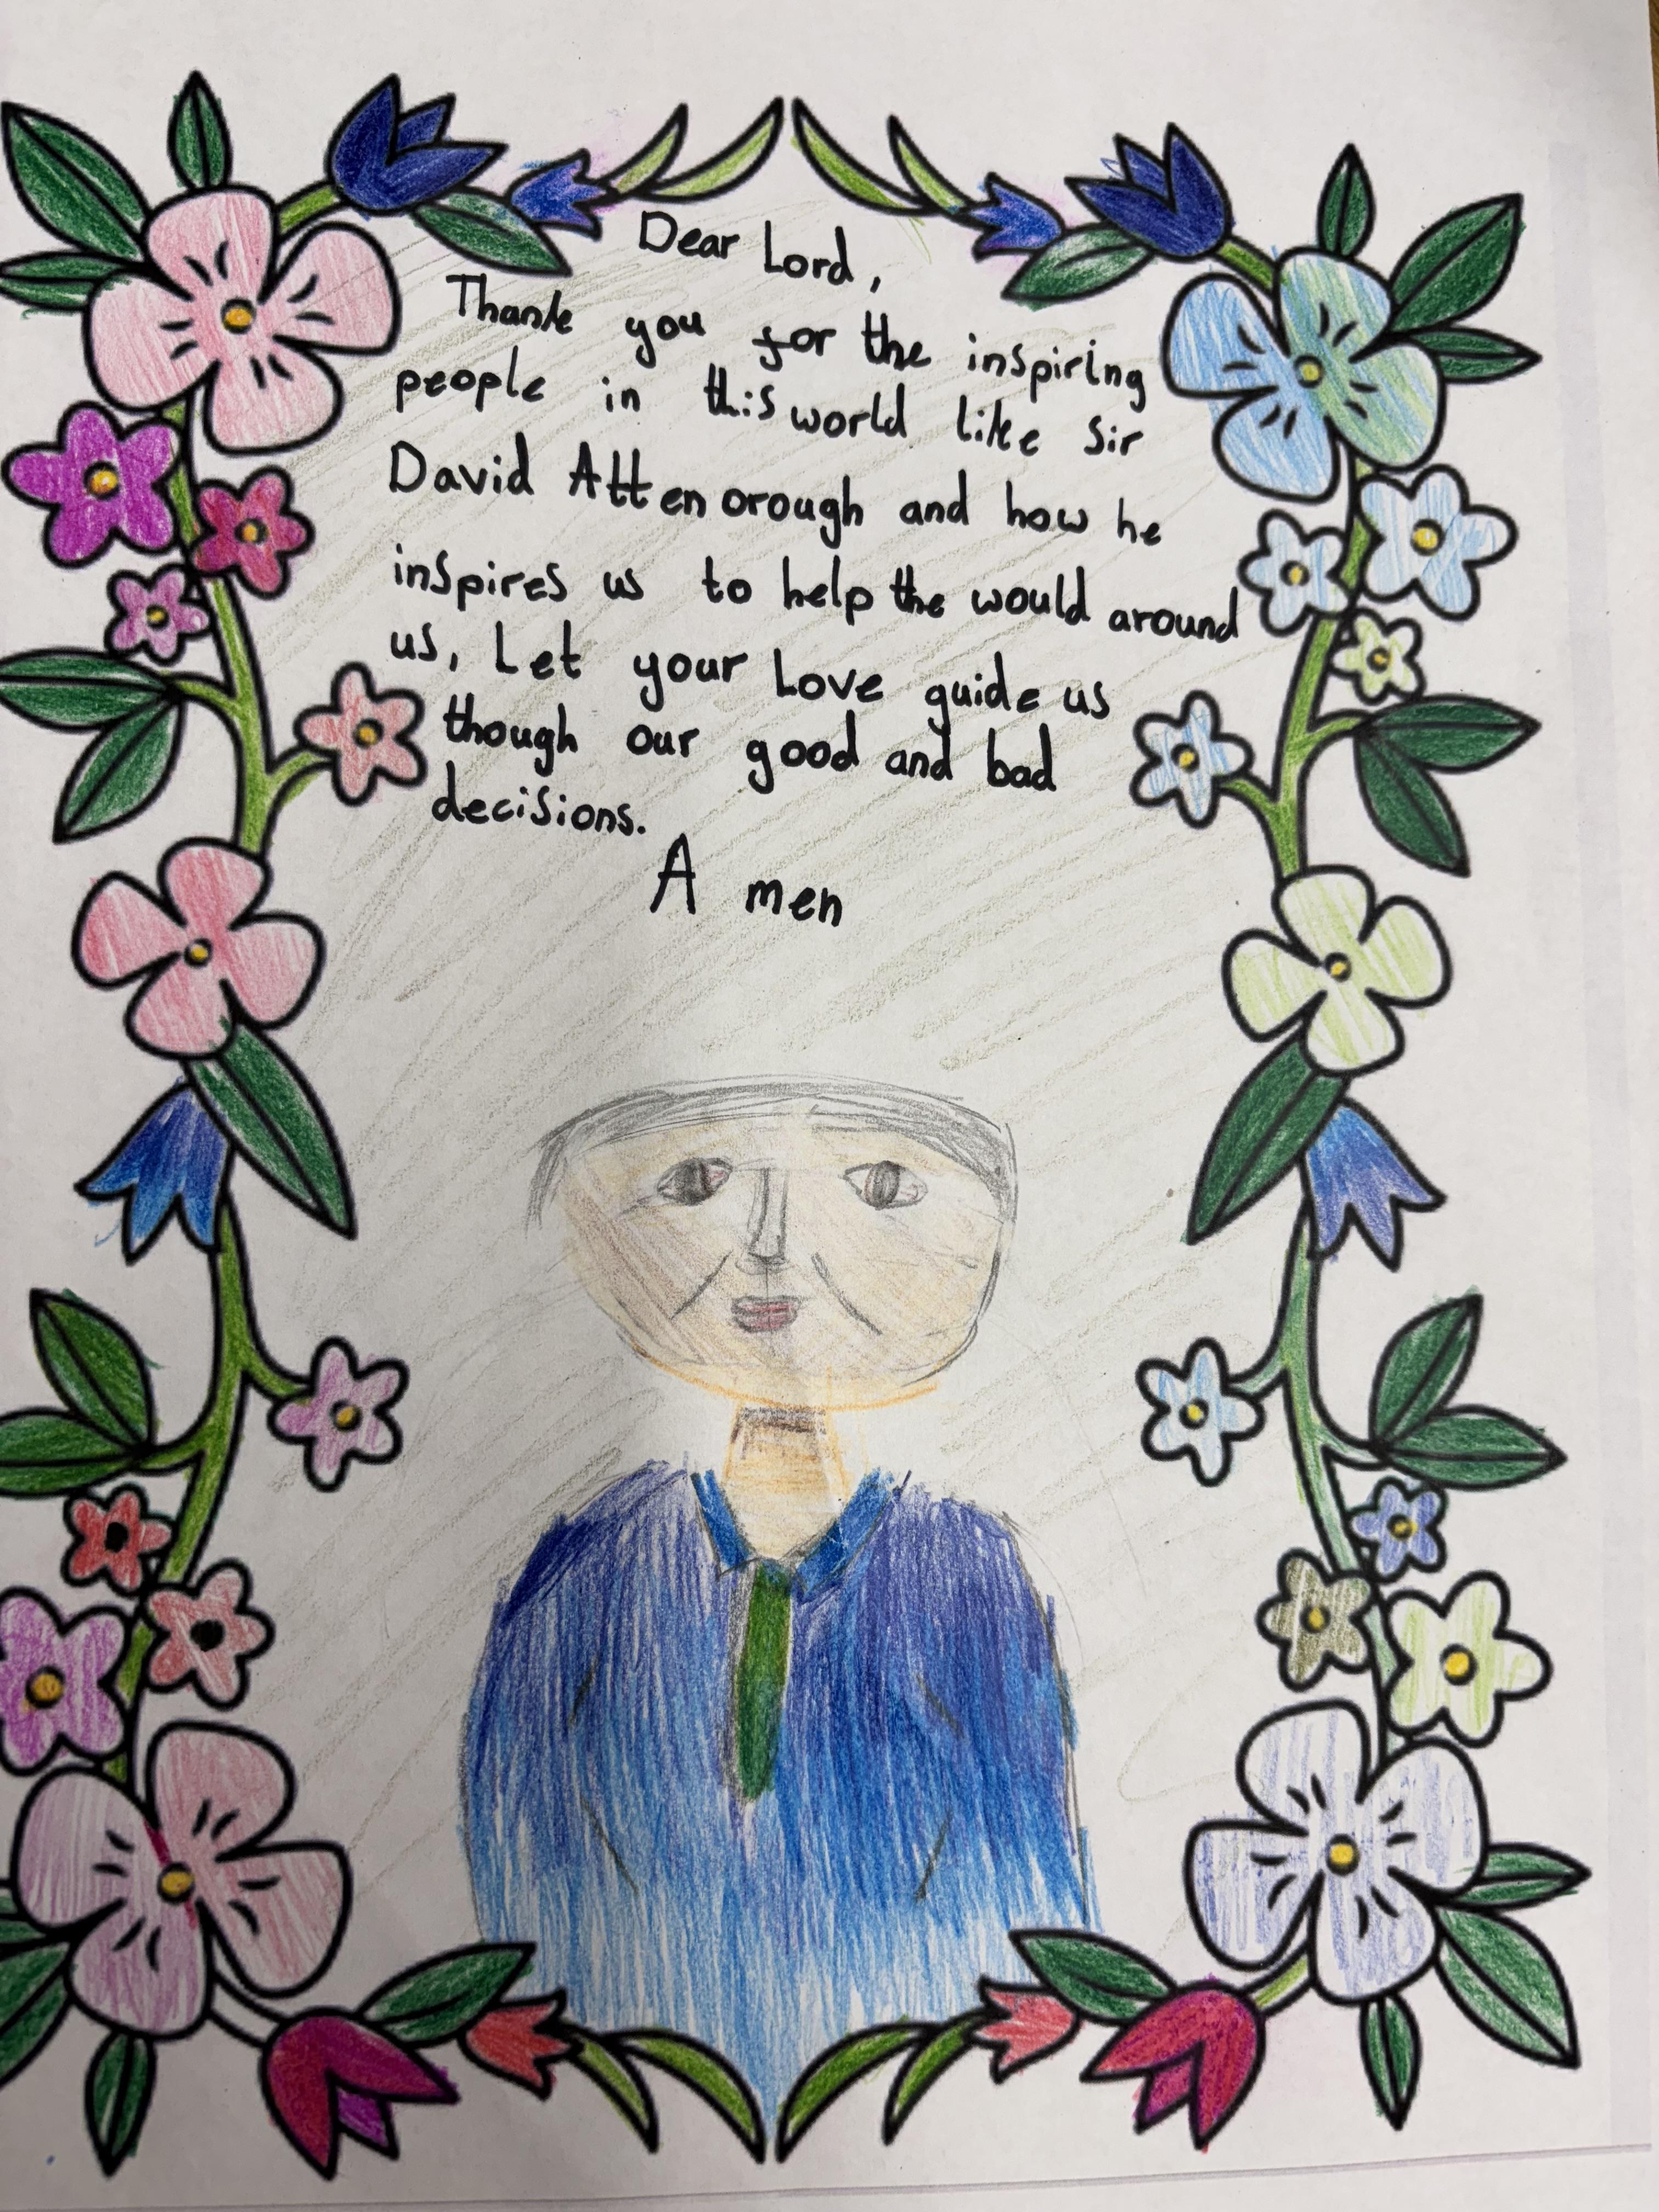 Dear Lord,
Thank you for the inspiring
people in this world like Sir
David Attenorough and how he
inspires us to help the would around
us, Let your Love guide us
though our good and bad
decisions.
A men